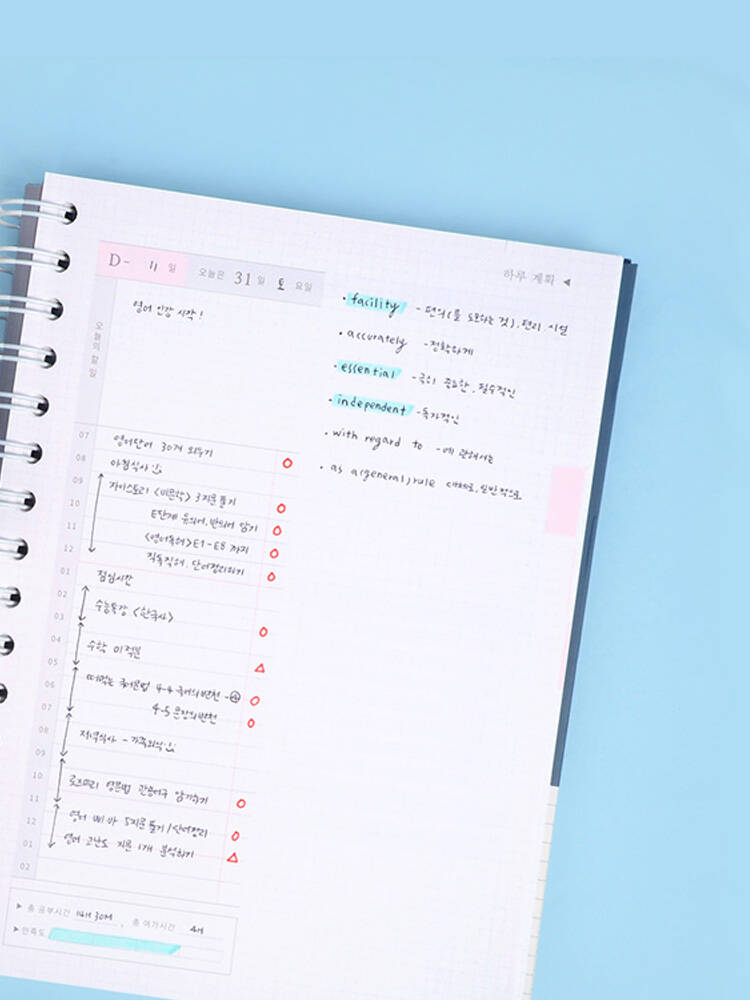 하루 계획 ◀
D- 11 일 오늘은 31 일 토 요일
오늘의 할 일
영어 인강 시작!
07
영어단어 30개 외우기
08
아침식사
09
자이스토리 <비문학> 3지문 풀기
10
E단계 유의어, 반의어 암기
11
<영어독해> E1-E8 까지
12
직독직해, 단어정리하기
01
점심시간
02
수능특강 <한국사>
03
04
수학 미적분
05
06
떠먹는 국어문법 4-4 국어의 변천 -
07
4-5 문장의 변천
08
저녁식사 - 가족외식
09
10
로즈마리 영문법 관용어구 암기하기
11
12
영어 5지문 풀기 / 단어정리
01
영어 고난도 지문 1개 분석하기
02
▶ 총 공부시간 14H 30M , 총 여가시간 4H
▶ 만족도
• facility - 편의(를 도모하는 것), 편리, 시설
• accurately - 정확하게
• essential - 극히 중요한, 필수적인
• independent - 독자적인
• with regard to - 에 관해서는
• as a(general) rule 대체로, 일반적으로